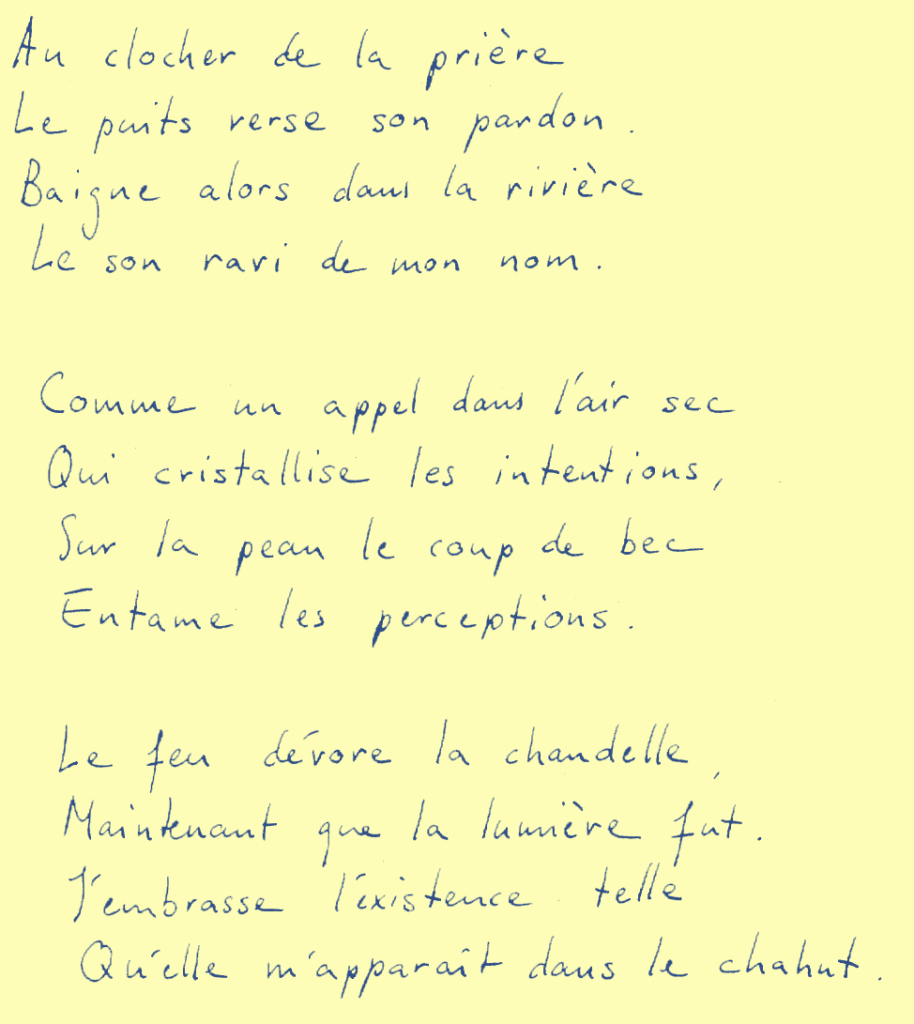 Au clocher de la prière
Le puits verse son pardon.
Baigne alors dans la rivière
Le son ravi de mon nom.
Comme un appel dans l'air sec
Qui cristallise les intentions,
Sur la peau le coup de bec
Entame les perceptions.
Le feu dévore la chandelle,
Maintenant que la lumière fut.
J'embrasse l'existence telle
Qu'elle m'apparaît dans le chahut.